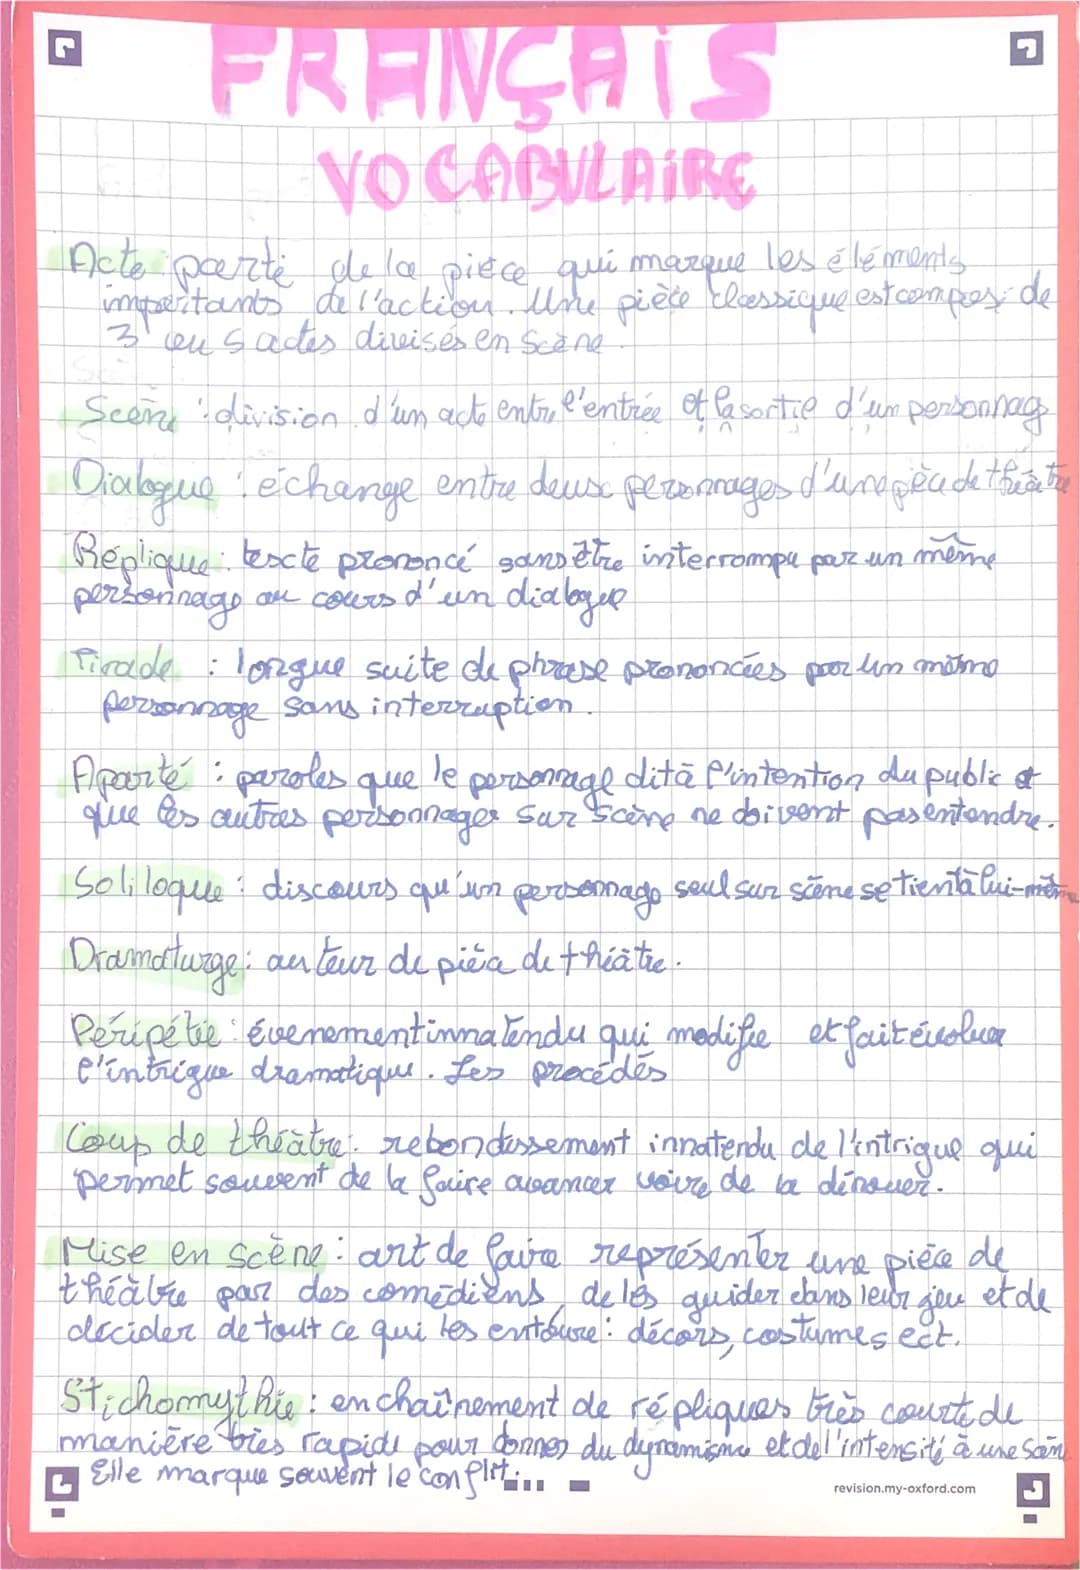 FRANÇAIS
VOCABULAIRE
Acte parti de la pièce qui marque les éléments
importants de l'action. Une pièce classique est compos de
3 ou 5 actes divisés en scène.
Scène : division d'un acte entre l'entrée et la sortie d'un personnag
Dialogue : échange entre deux personnages d'une pièce de théâtre
Réplique : texte prononcé sans être interrompu par un même
personnage au cours d'un dialogue
Tirade : longue suite de phrase prononcées par un même
personnage sans interruption.
Aparté : paroles que le personnage dit à l'intention du public et
que les autres personnages sur scène ne doivent pas entendre.
Soliloque : discours qu'un personnage seul sur scène se tient à lui-même
Dramaturge : auteur de pièce de théâtre.
Péripétie : évenement innatendu qui modifie et fait évoluer
l'intrigue dramatique. Les procédés
Coup de théâtre : rebondissement innatendu de l'intrigue qui
permet souvent de la faire avancer voire de la dénouer.
Mise en scène : art de faire représenter une pièce de
théâtre par des comédiens, de les guider dans leur jeu et de
décider de tout ce qui les entoure : décors, costumes ect.
Stichomythie : enchaînement de répliques très courte de
manière très rapide pour donner du dynamisme et de l'intensité à une scène
Elle marque souvent le conflit...
revision.my-oxford.com